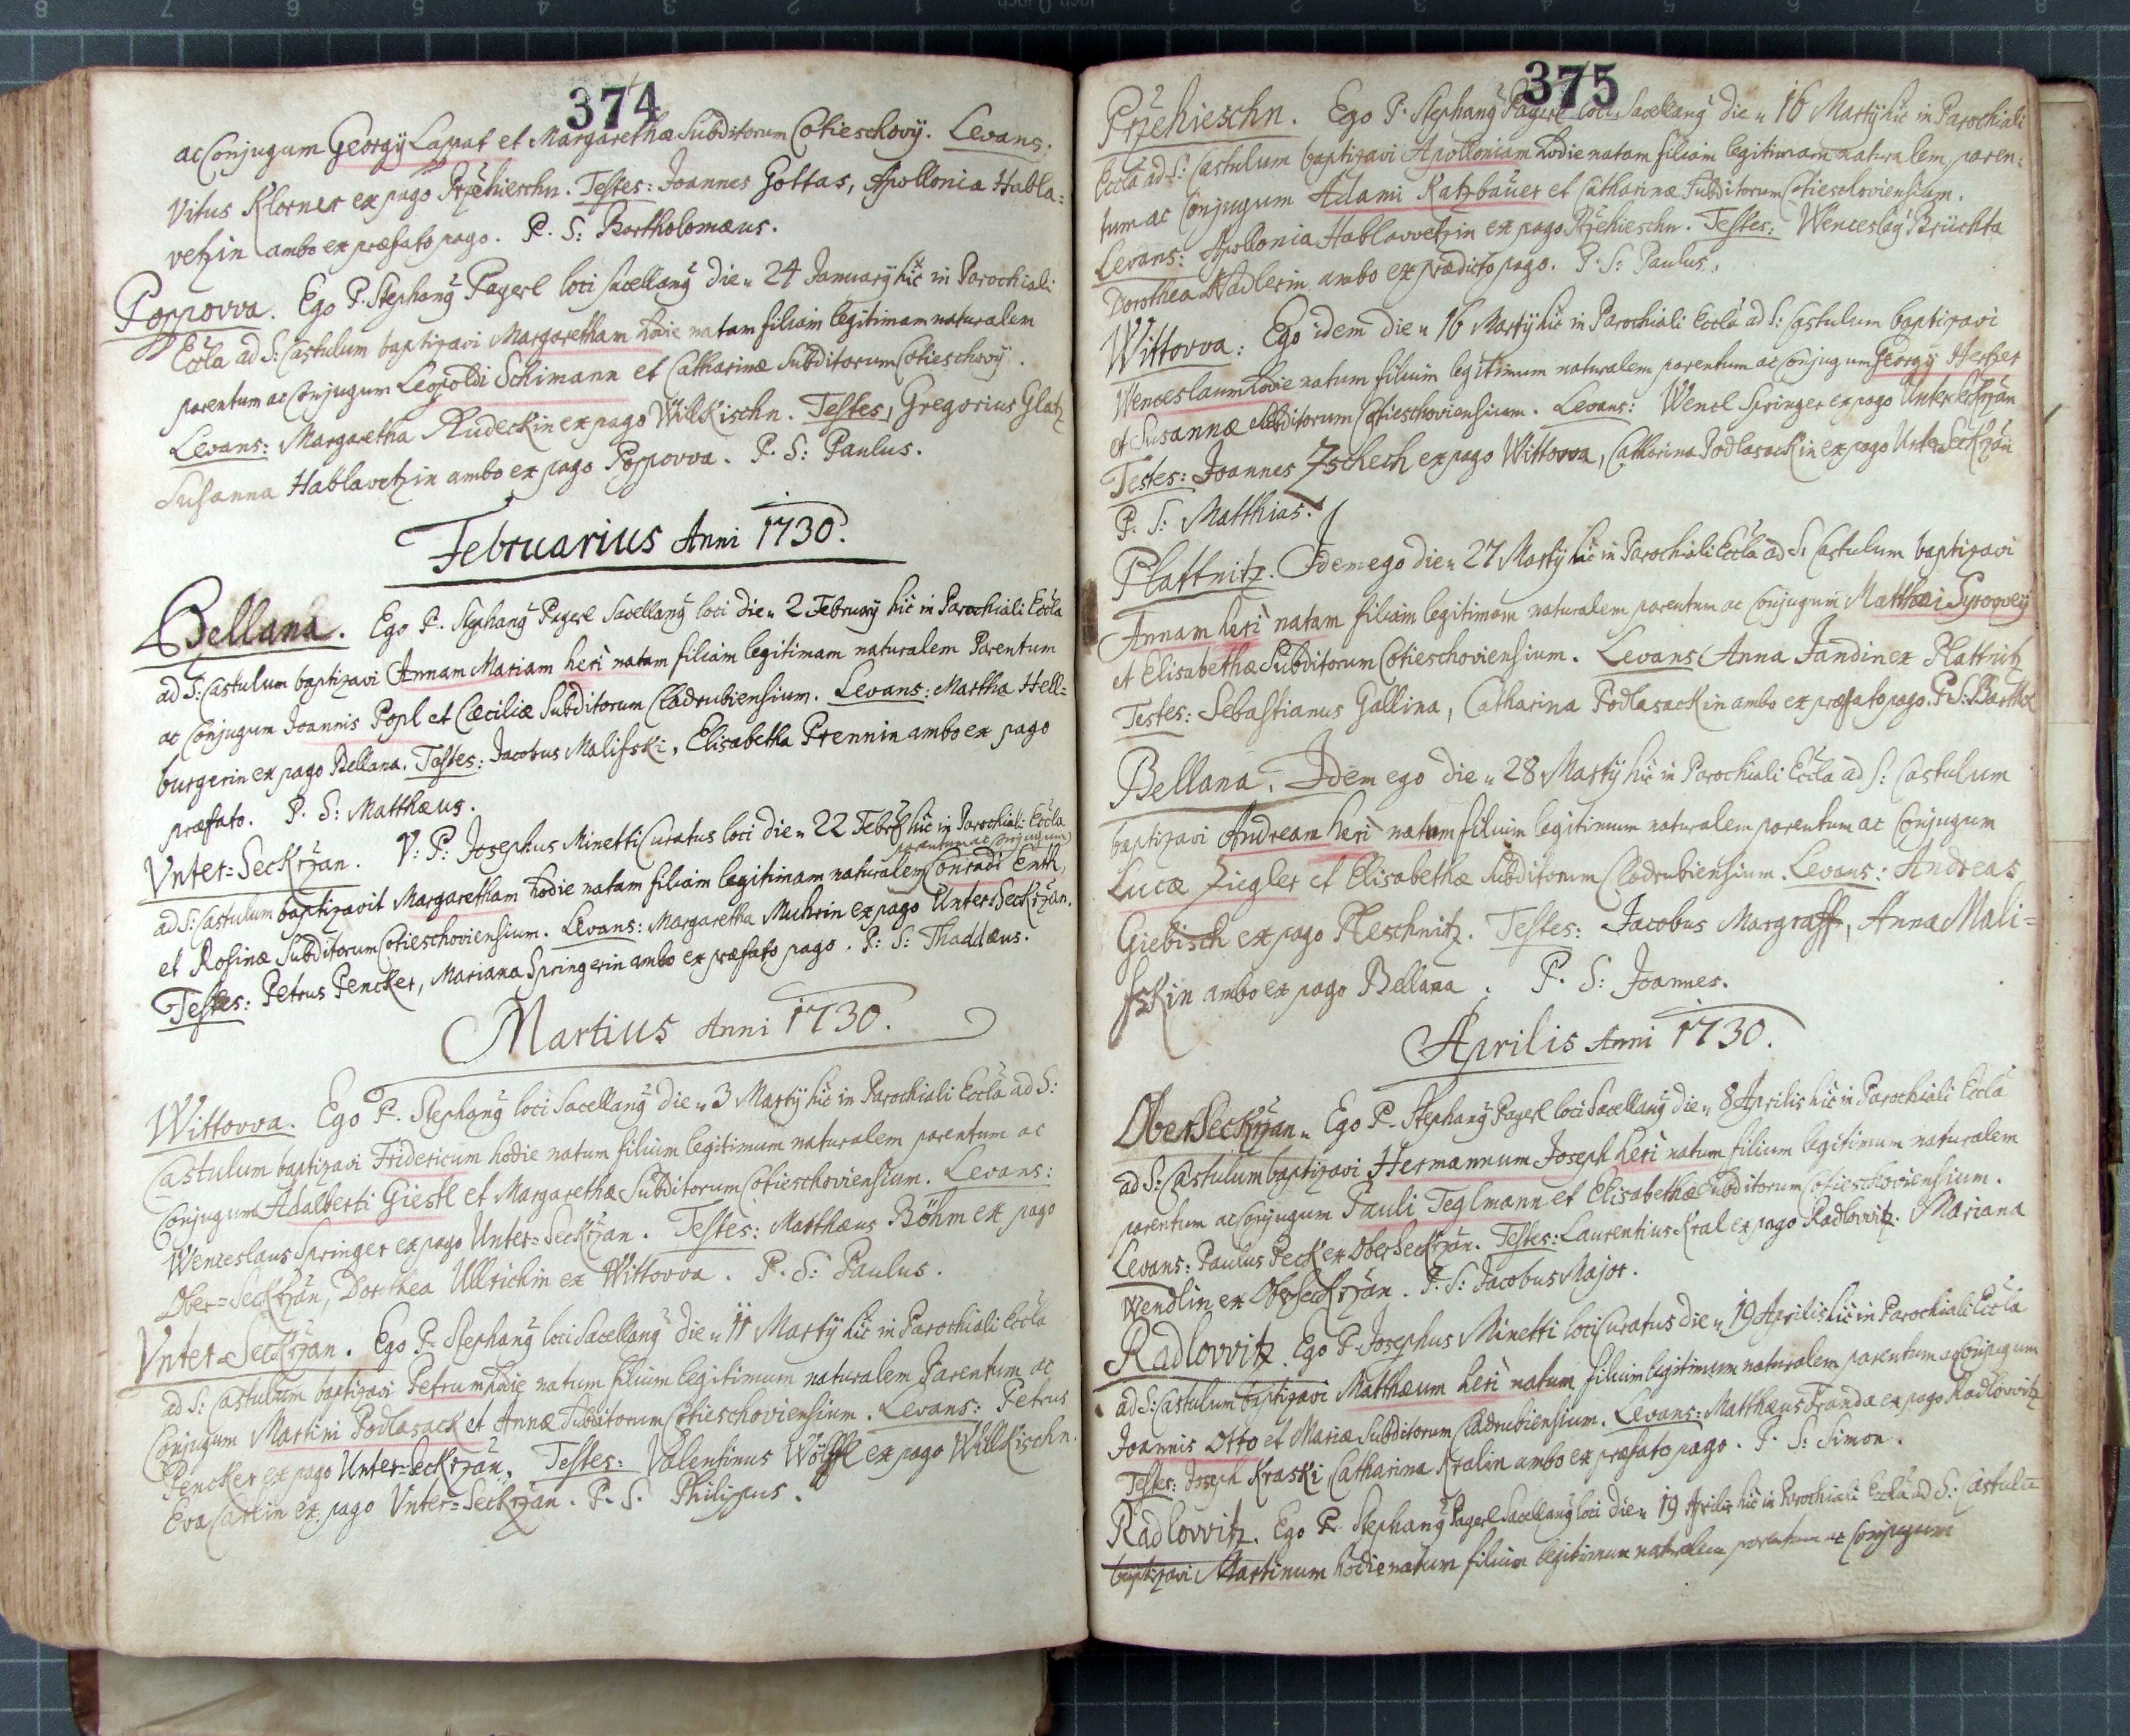 374
ac Conjugum Georgij Lapat et Margarethæ Subditorum Cotieschovij. Levans:
Vitus Klorner ex pago Przehieschn. Testes: Joannes Gottas, Apollonia Habla=
vetzin ambo ex præfato pago. P. S: Bartholomæus.
Poppovva. Ego P. Stephang Pagerl loci Sacellang die 24 January hic in Parochiali
Eccla ad S: Castulum baptizavi Margaretham hodie natam filiam legitimam naturalem
parentum ac Conjugum Leopoldi Schimann et Catharinæ Subditorum Cotieschovij.
Levans: Margaretha Rudeckin ex pago Willkischn. Testes, Gregorius Glatz
Susanna Hablavetzin ambo ex pago Poppovva. P. S: Paulus.
Februarius Anni 1730.
Bellana. Ego P. Stephang Pagerl Sacellang loci die 2 February hic in Parochiali Eccla
ad S: Castulum baptizavi Annam Mariam heri natam filiam legitimam naturalem Parentum
ac Conjugum Joannis Popl et Cæciliæ Subditorum Cladrubiensium. Levans: Martha Hell=
burgerin ex pago Bellana. Testes: Jacobus Malifski, Elisabetha Prennin ambo ex pago
præfato. P. S: Matthæus.
Vnter=Seckrzan. V: P: Josephus Minetti Curatus loci die 22 Febr hic in Parochiali Eccla
parentum ac Conjugum
ad S: Castulum baptizavit Margaretham hodie natam filiam legitimam naturalem Conradi Enth,
et Rosinæ Subditorum Cotieschoviensium. Levans: Margaretha Muhrin ex pago Unter=Seckrzan.
Testes: Petrus Pencker, Mariana Springerin ambo ex præfato pago. P: S: Thaddæus.
Martius Anni 1730.
Wittovva. Ego P. Stephang loci Sacellang die 3 Martij hic in Parochiali Eccla ad S:
Castulum baptizavi Fridericum hodie natum filium legitimum naturalem parentum ac
Conjugum Adalberti Giestl et Margarethæ Subditorum Cotieschoviensium. Levans:
Wenceslaus Springer ex pago Unter=Seckrzan. Testes: Matthæus Böhm ex pago
Ober=Seckrzan, Dorothea Ullrichin ex Wittovva. P. S: Paulus.
Vnter=Seckrzan. Ego P. Stephang loci Sacellang die 11 Martij hic in Parochiali Eccla
ad S: Castulum baptizavi Petrum hodie natum filium legitimum naturalem Parentum ac
Conjugum Martini Podlasack et Annæ Subditorum Cotieschoviensium. Levans: Petrus
Pencker ex pago Unter=Seckrzan. Testes: Valentinus Wölffl ex pago Willkischn.
Eva Carlin ex pago Vnter=Seckrzan. P. S. Philippus.
375
Przehieschn. Ego P. Stephang Pagerl loci Sacellang die 16 Martij hic in Parochiali
Eccla ad S: Castulum baptizavi Apolloniam hodie natam filiam legitimam naturalem paren:
tum ac Conjugum Adami Katzbauer et Catharinæ Subditorum Cotieschoviensium.
Levans: Apollonia Hablavvetzin ex pago Przehieschn. Testes: Wenceslag Brüchta
Dorothea Adlerin ambo ex prædicto pago. P. S: Paulus.
Wittovva: Ego idem die 16 Martij hic in Parochiali Eccla ad S: Castulum baptizavi
Wenceslaum hodie natum filium legitimum naturalem parentum ac Conjugum Georgij Hertzer
et Susannæ Subditorum Cotieschoviensium. Levans: Wencl Springer ex pago Unterseckrzan
Testes: Joannes Zschech ex pago Wittovva, Catharina Podlasackin ex pago Unterseckrzan
P. S: Matthias.
Plattnitz. Idem ego die 27 Martij hic in Parochiali Eccla ad S: Castulum baptizavi
Annam heri natam filiam legitimam naturalem parentum ac Conjugum Matthæi Syrowey
et Elisabethæ Subditorum Cotieschoviensium. Levans Anna Jandin ex Plattnitz
Testes: Sebastianus Gallina, Catharina Podlasackin ambo ex præfato pago. P. S: Barthol
Bellana. Idem ego die 28 Martij hic in Parochiali Eccla ad S: Castulum
baptizavi Andream heri natum filium legitimum naturalem parentum ac Conjugum
Lucæ Ziegler et Elisabethæ Subditorum Cladrubiensium. Levans: Andreas
Giebisch ex pago Pleschnitz. Testes: Jacobus Margraff, Anna Mali=
fskin ambo ex pago Bellana. P. S: Joannes.
Aprilis Anni 1730.
Oberseckrzan. Ego P. Stephang Pagerl loci Sacellang die 8 Aprilis hic in Parochiali Eccla
ad S: Castulum baptizavi Hermannum Joseph heri natum filium legitimum naturalem
parentum ac Conjugum Pauli Teglmann et Elisabethæ Subditorum Cotieschoviensium.
Levans: Paulus Peck ex Oberseckrzan. Testes: Laurentius Kral ex pago Radlovvitz. Mariana
Wendlin ex Oberseckrzan. P. S: Jacobus Major.
Radlovvitz. Ego P. Josephus Minetti loci Curatus die 19 Aprilis hic in Parochiali Eccla
ad S: Castulum baptizavi Matthæum heri natum filium legitimum naturalem parentum ac Conjugum
Joannis Otto et Mariæ Subditorum Cladrubiensium. Levans: Matthæus Franda ex pago Radlovvitz
Testes: Joseph Kraski Catharina Kralin ambo ex præfato pago. P. S: Simon.
Radlovvitz. Ego P. Stephang Pagerl Sacellang loci die 19 Aprilis hic in Parochiali Eccla ad S: Castulu
baptizavi Martinum hodie natum filium legitimum naturalem parentum ac Conjugum